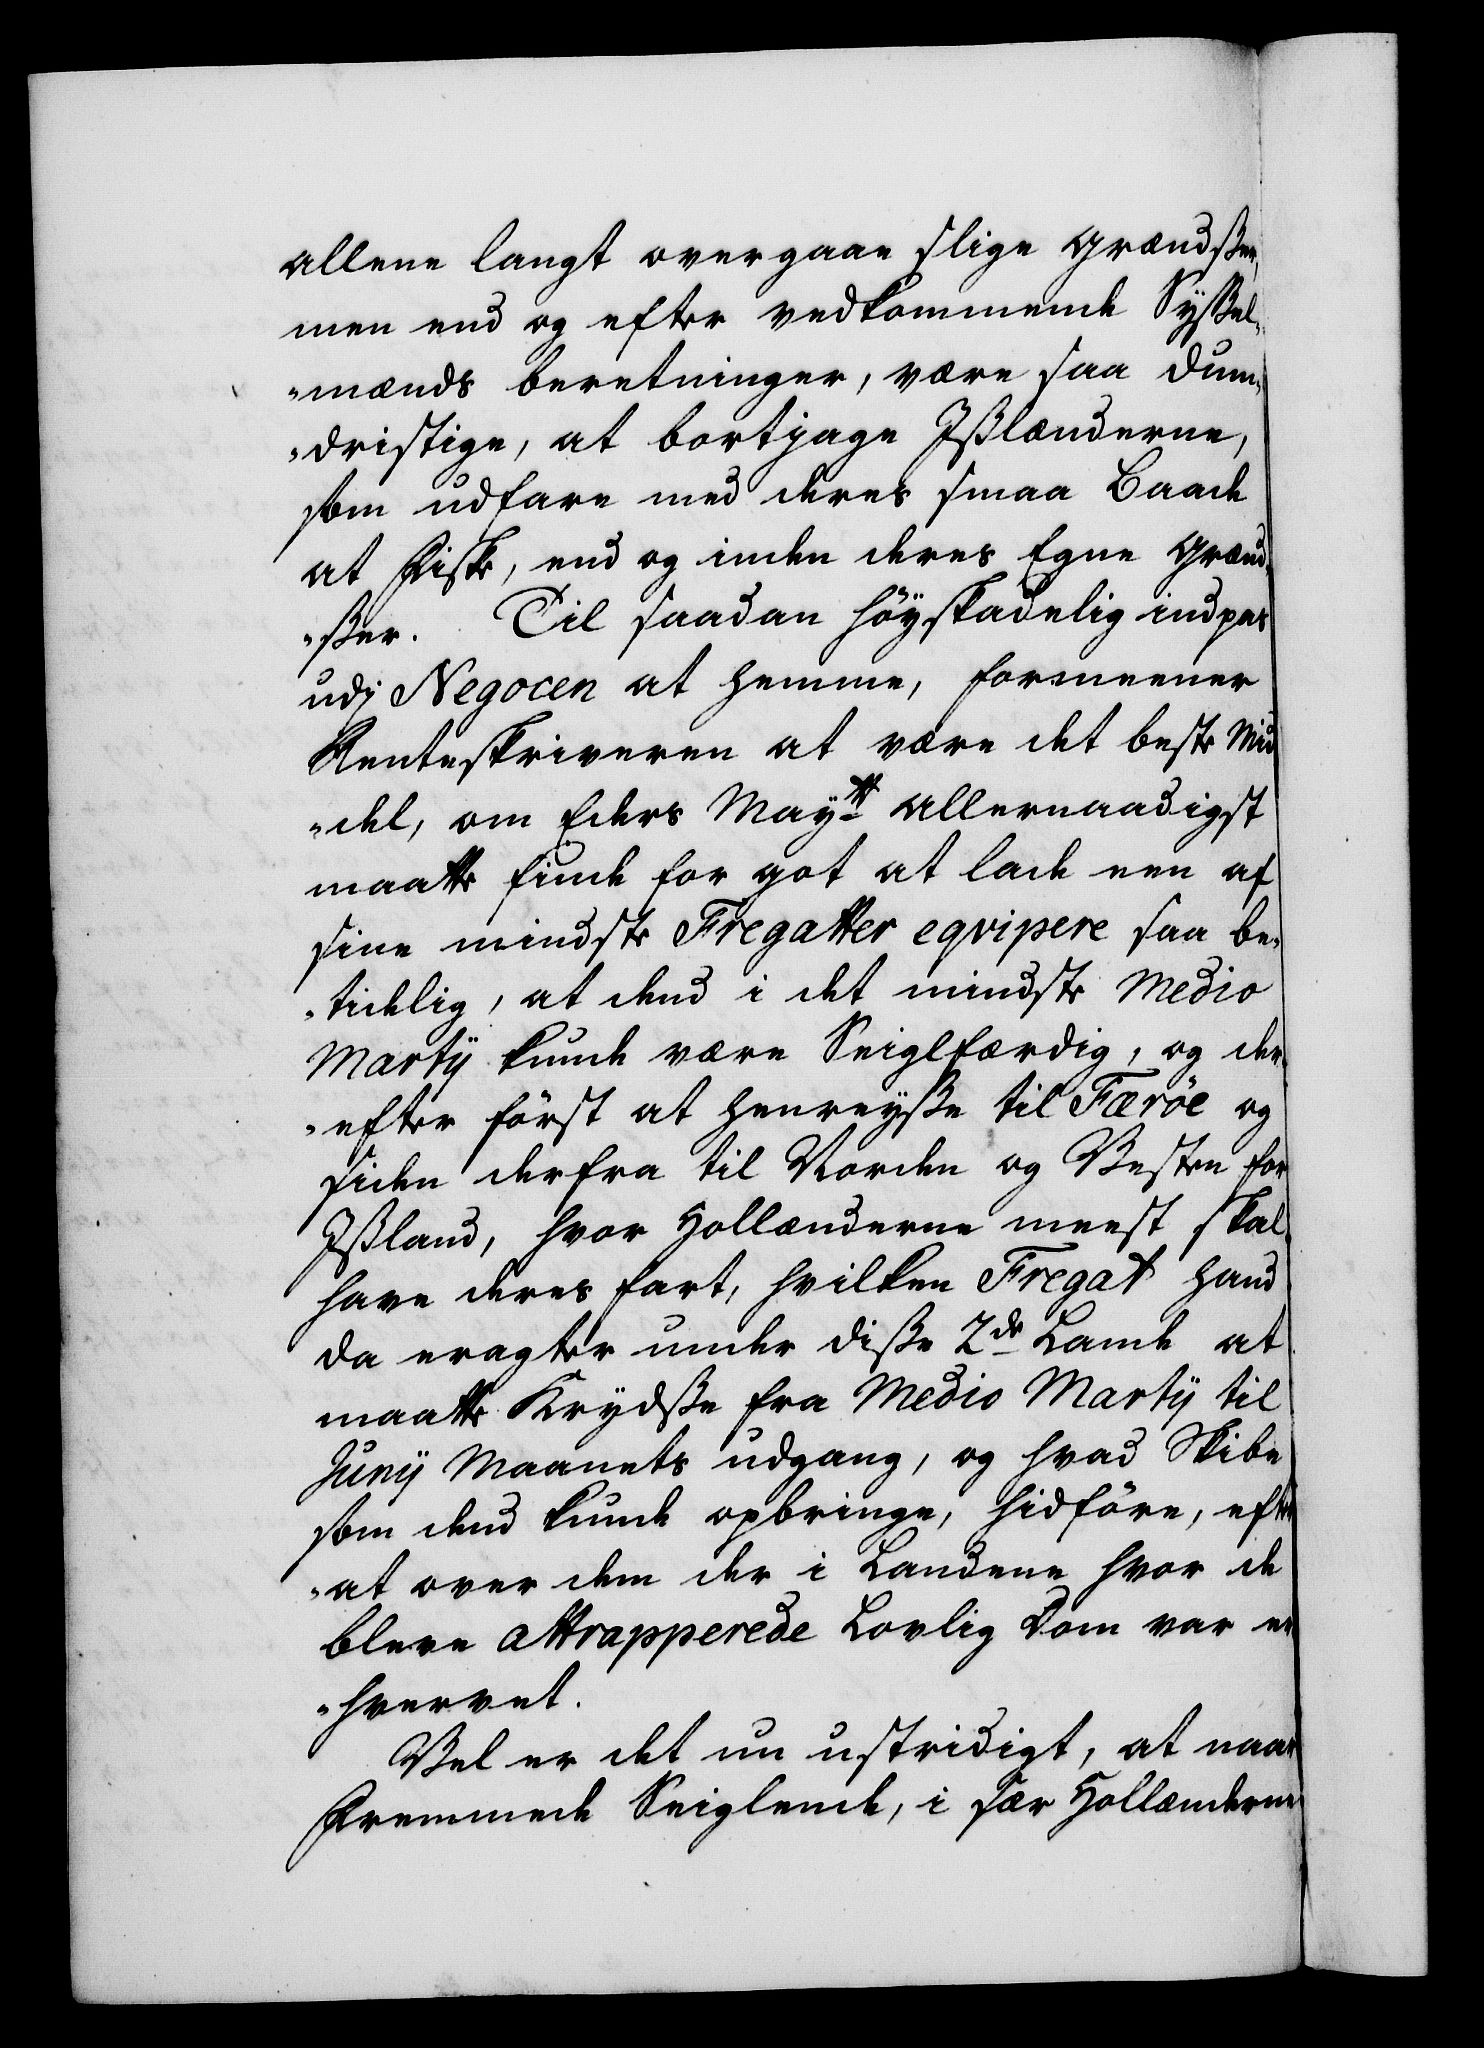 allene langt overgaae slige Grændßer,
men end og efter vedkommende Syßel-
-mænds beretninger, være saa dum-
-dristige, at bortjage Ißlænderne,
som udfare med deres smaa Baade
at Fiske, end og inden deres Egne Grænd-
-ßer. Til saadan höyskadelig indpas
udj Negocen at hemme, formeener
Renteskriveren at være det beste Mid
-del, om Eders May:tt allernaadigst
maatte finde for got at lade een af
sine mindste Fregatter eqvipere saa be-
-tidelig, at dend i det mindste Medio
Martÿ kunde være Seiglfærdig, og der-
-efter först at henreyße til Færöe og
siden derfra til Norden og Vesten for
Ißland, hvor Hollænderne meest skal
have deres fart, hvilken Fregat hand
da eragter under diße 2de Lande at
maatte Krydße fra Medio Martÿ til
Junÿ Maanets udgang, og hvad Skibe
som dend kunde opbringe, hidföre, efter
-at over dem der i Landene hvor de
bleve attrapperede Lovlig Dom var er
-hvervet.
Vel er det nu ustridigt, at naar
Fremmede Seiglende, i sær Hollænderne